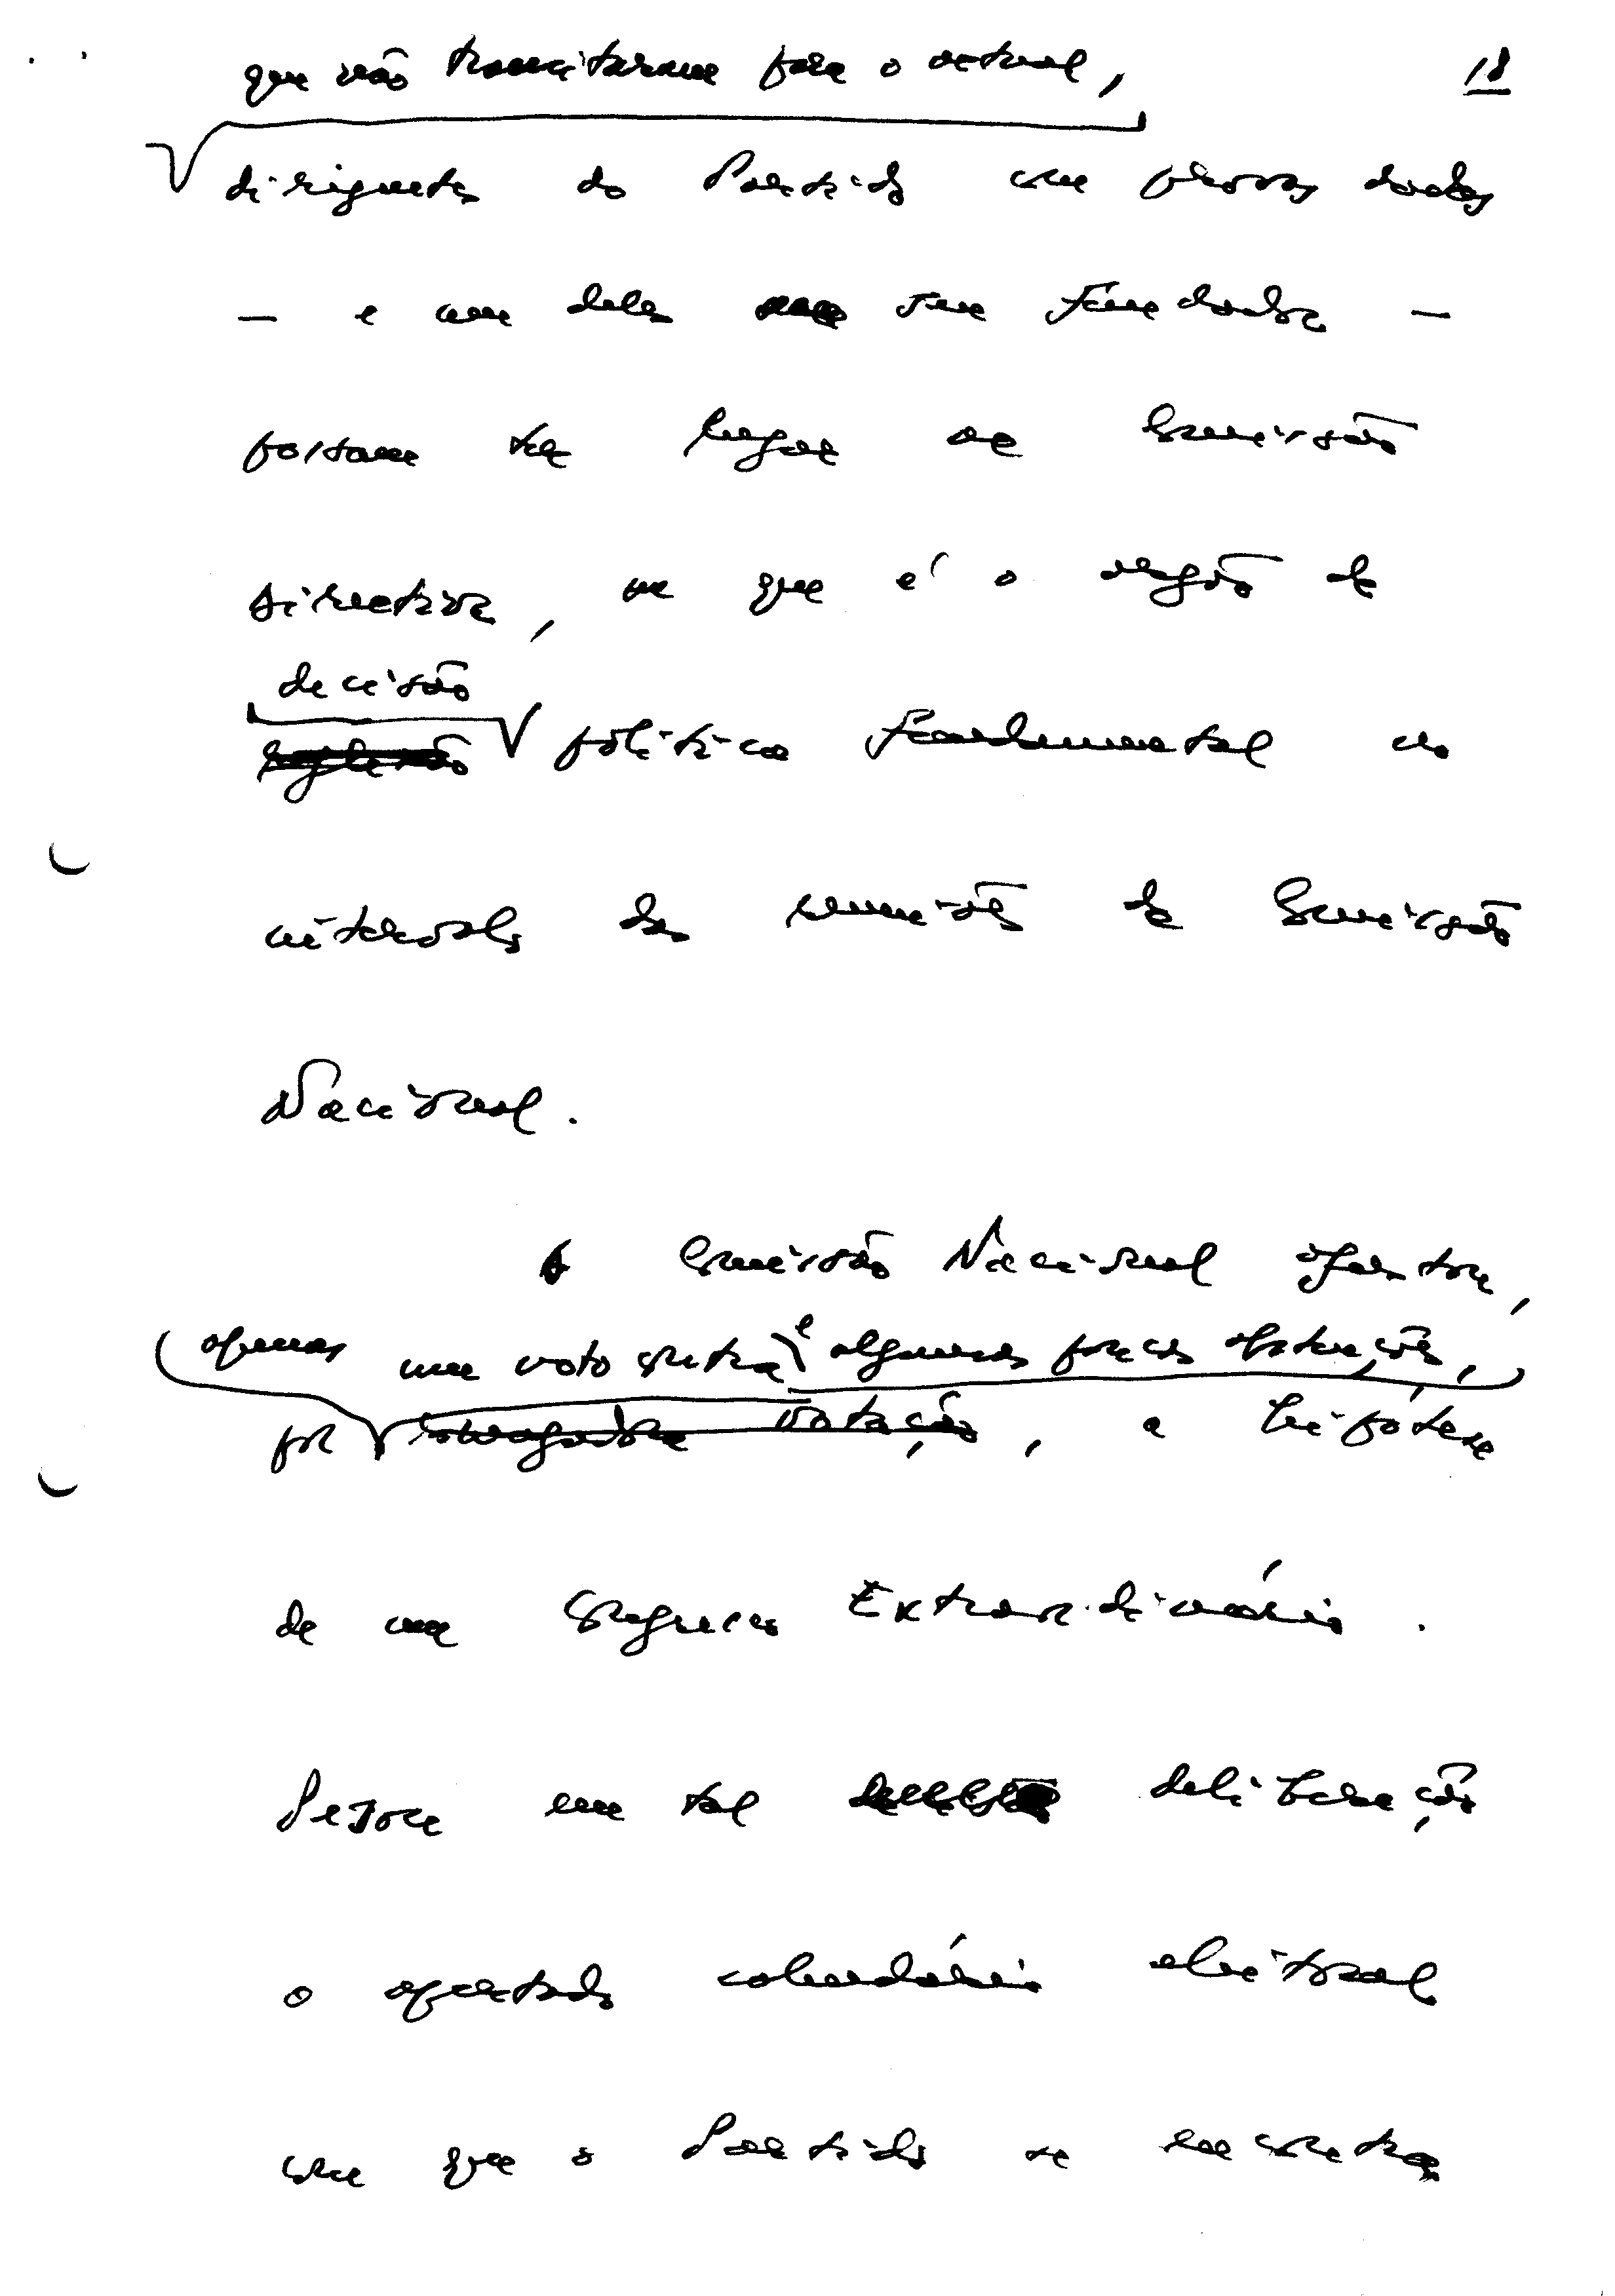 18
que não transitaram para o actual,
dirigentes do Partido com provas dadas
— e um deles seu fundador —
possam ter lugar na Comissão
Directiva, na que é o orgão de
decisão
política fundamental no
intervalo das reuniões da Comissão
Nacional.
A Comissão Nacional afastou,
apenas um voto contra e algumas poucas abstenções,
por votação, a hipótese
de um Congresso Extraordinário.
Pesou em tal deliberação
o apertado calendário eleitoral
com que o Partido se encontra